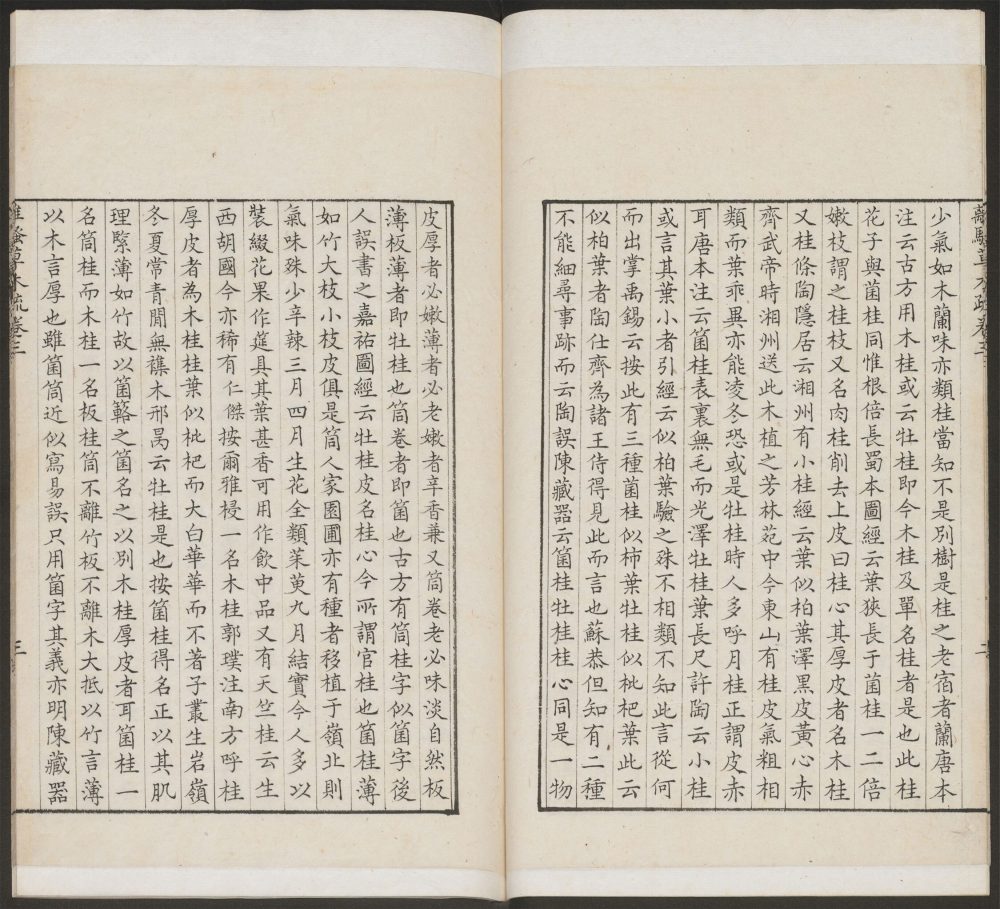 離騷草木疏卷三
少氣如木蘭味亦類桂當知不是別樹是桂之老宿者蘭唐本
注云古方用木桂或云牡桂即今木桂及單名桂者是也此桂
花子與菌桂同惟根倍長蜀本圖經云葉狹長于菌桂一二倍
嫩枝謂之桂枝又名肉桂削去上皮曰桂心其厚皮者名木桂
又桂條陶隱居云湘州有小桂經云葉似柏葉澤黑皮黃心赤
齊武帝時湘州送此木植之芳林苑中今東山有桂皮氣粗相
類而葉乖異亦能凌冬恐或是牡桂時人多呼月桂正謂皮赤
耳唐本注云箘桂表裏無毛而光澤牡桂葉長尺許陶云小桂
或言其葉小者引經云似柏葉驗之殊不相類不知此言從何
而出掌禹錫云按此有三種菌桂似柿葉牡桂似枇杷葉此云
似柏葉者陶仕齊為諸王侍得見此而言也蘇恭但知有二種
不能細尋事跡而云陶誤陳藏器云箘桂牡桂桂心同是一物
皮厚者必嫩薄者必老嫩者辛香兼又筒卷老必味淡自然板
薄板薄者即牡桂也筒卷者即箘也古方有筒桂字似箘字後
人誤書之嘉祐圖經云牡桂皮名桂心今所謂官桂也箘桂薄
如竹大枝小枝皮俱是筒人家園圃亦有種者移植于嶺北則
氣味殊少辛辣三月四月生花全類茱萸九月結實今人多以
裝綴花果作筵具其葉甚香可用作飲中品又有天竺桂云生
西胡國今亦稀有仁傑按爾雅梫一名木桂郭璞注南方呼桂
厚皮者為木桂桂葉似枇杷而大白華華而不著子叢生岩嶺
冬夏常青間無襍木邢昺云牡桂是也按箘桂得名正以其肌
理緊薄如竹故以箘簵之箘名之以別木桂厚皮者耳箘桂一
名筒桂而木桂一名板桂筒不離竹板不離木大抵以竹言薄
以木言厚也雖箘筒近似寫易誤只用箘字其義亦明陳藏器
離騷草木疏卷三
三